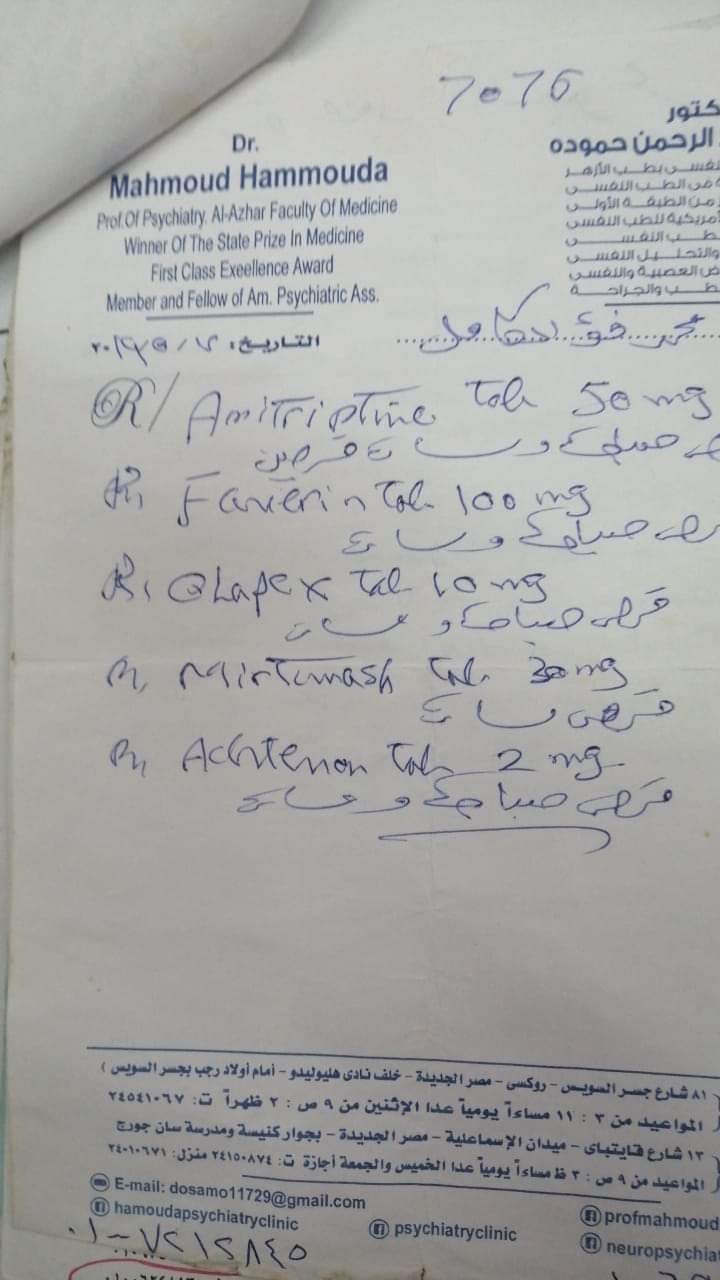 7076
Dr.
Mahmoud Hammouda
Prof.Of Psychiatry. Al-Azhar Faculty Of Medicine
Winner Of The State Prize In Medicine
First Class Exeellence Award
Member and Fellow of Am. Psychiatric Ass.
كتور
الرحمن حموده
نفسى بطب الأزهر
فى الطب النفسى
من الطبقة الأولى
مريكية للطب النفسى
طب النفسى
والتحليل النفسى
ض العصبية والنفسى
طب والجراحة
التاريخ:
R/ Amitriptine Tab 50 mg
صباحا و مساء قرصين
R, Faverin Tab 100 mg
صباحا و مساء
R, Olapex Tab 10 mg
قرص صباحا و مساء
R, Mirtimash Tab. 30 mg
قرص مساء
R, Achtenon Tab 2 mg
قرص صباحا و مساء
٨١ شارع جسر السويس - روكسى - مصر الجديدة - خلف نادى هليوليدو - أمام أولاد رجب بجسر السويس )
المواعيد من ٣ : ١١ مساءاً يومياً عدا الإثنين من ٩ ص : ٢ ظهراً ت: ٢٤٥٤١٠٦٧
١٣ شارع قايتباى - ميدان الإسماعلية - مصر الجديدة - بجوار كنيسة ومدرسة سان جورج
المواعيد من ٩ ص : ٣ ظ مساءاً يومياً عدا الخميس والجمعة أجازة ت: ٢٤١٥٠٨٧٤ منزل: ٢٤٠١٠٦٧١
E-mail: dosamo11729@gmail.com
hamoudapsychiatryclinic
psychiatryclinic
profmahmoud
neuropsychia